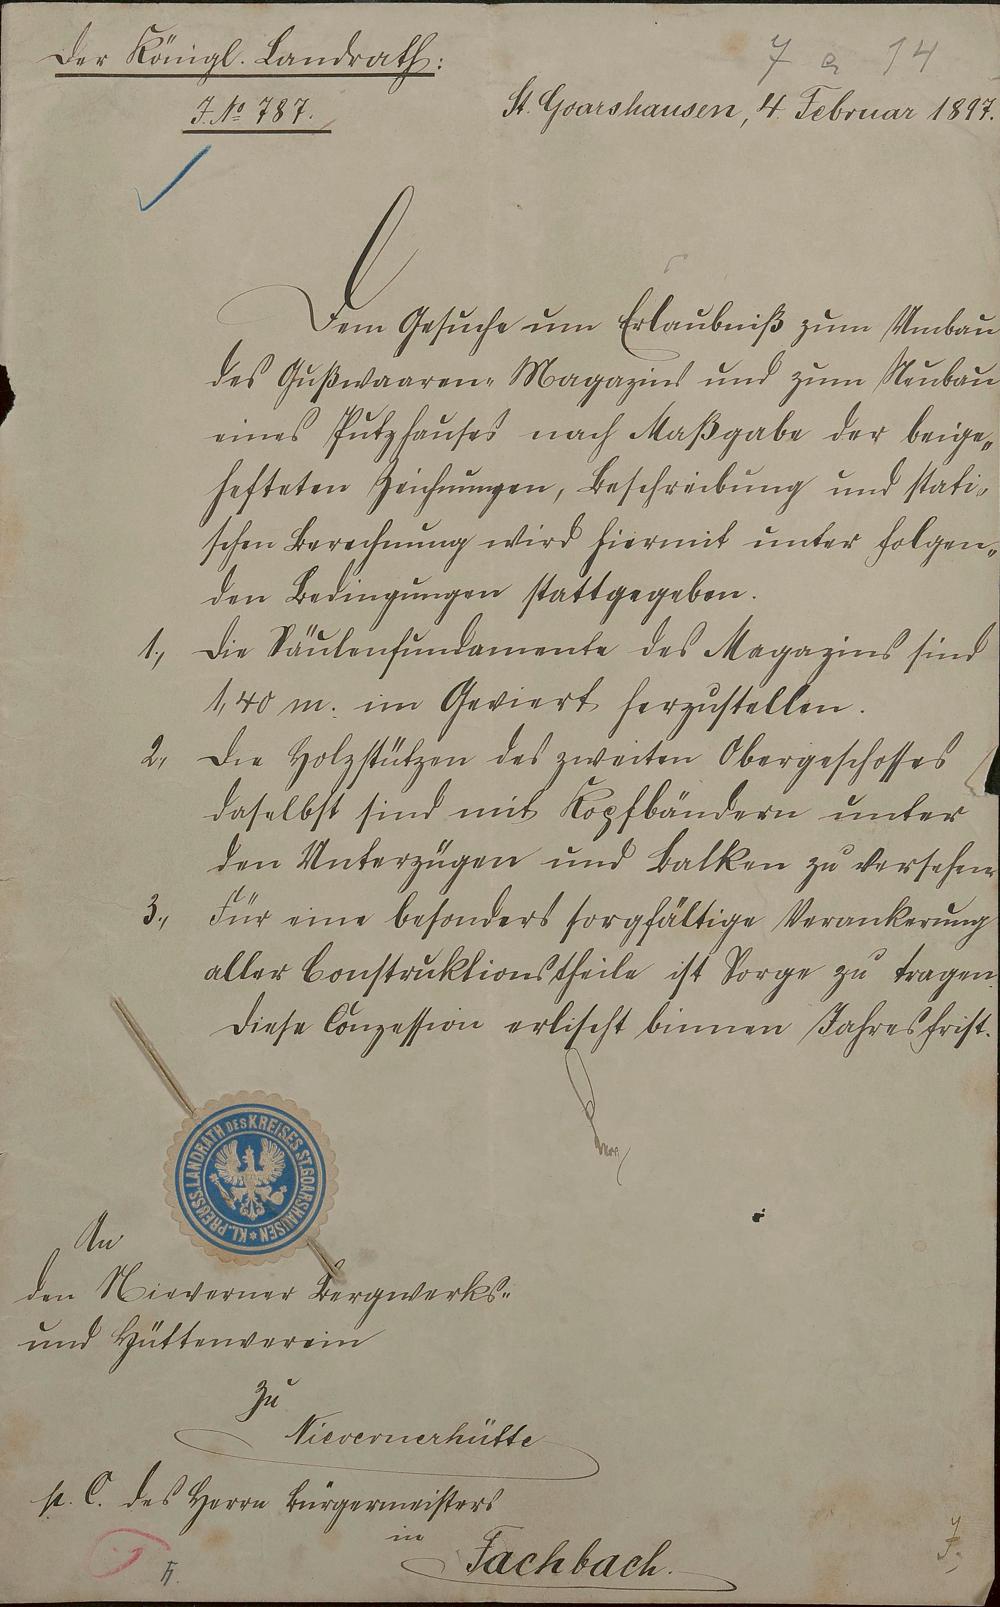 Der Königl. Landrath:
7 a 14
J. No 787.
St. Goarshausen, 4. Februar 1897.
Dem Gesuche um Erlaubniß zum Umbau
des Gußwaaren-Magazins und zum Neubau
eines Putzhauses nach Maßgabe der beige-
hefteten Zeichnungen, Beschreibung und stati-
schen Berechnung wird hiermit unter folgen-
den Bedingungen stattgegeben.
1., Die Säulenfundamente des Magazins sind
1,40 m. im Geviert herzustellen.
2., Die Holzstützen des zweiten Obergeschosses
daselbst sind mit Kopfbändern unter
den Unterzügen und Balken zu versehen
3., Für eine besonders sorgfältige Verankerung
aller Construktionstheile ist Sorge zu tragen.
Diese Conzession erlischt binnen Jahresfrist.
KL. PREUSS. LANDRATH DES KREISES ST. GOARSHAUSEN *
An
den Nieverner Bergwerks-
und Hüttenverein
zu
Nievernerhütte
p. C. des Herrn Bürgermeisters
in
Fachbach.